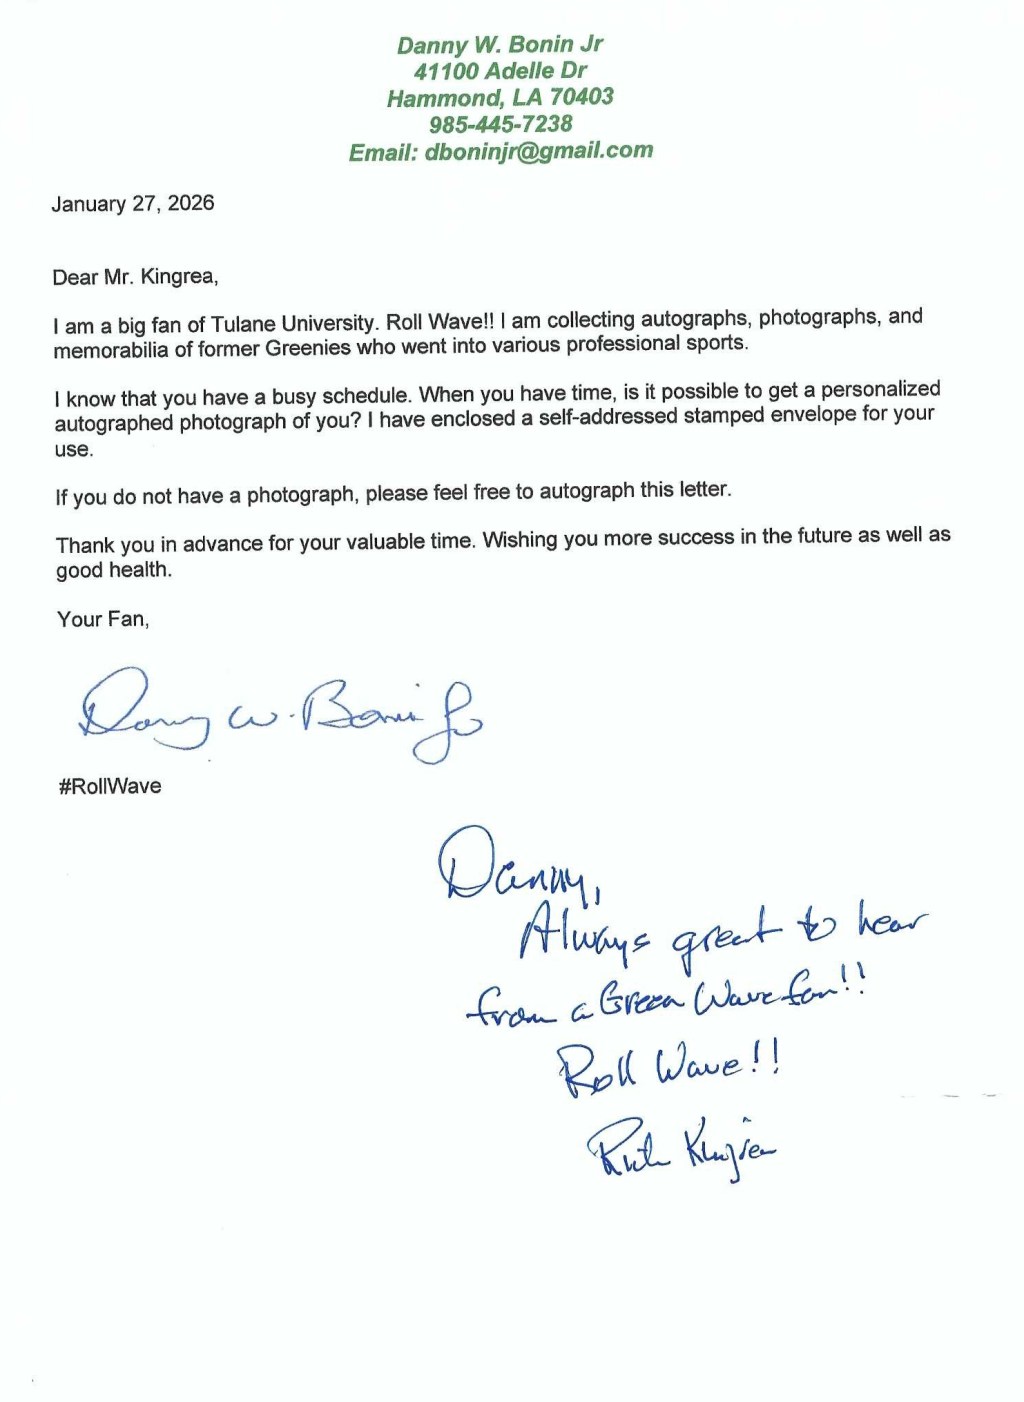 Danny W. Bonin Jr
41100 Adelle Dr
Hammond, LA 70403
985-445-7238
Email: dboninjr@gmail.com
January 27, 2026
Dear Mr. Kingrea,
I am a big fan of Tulane University. Roll Wave!! I am collecting autographs, photographs, and
memorabilia of former Greenies who went into various professional sports.
I know that you have a busy schedule. When you have time, is it possible to get a personalized
autographed photograph of you? I have enclosed a self-addressed stamped envelope for your
use.
If you do not have a photograph, please feel free to autograph this letter.
Thank you in advance for your valuable time. Wishing you more success in the future as well as
good health.
Your Fan,
Danny W. Bonin Jr
#RollWave
Danny,
Always great to hear
from a Green Wave fan!!
Roll Wave!!
Kingrea